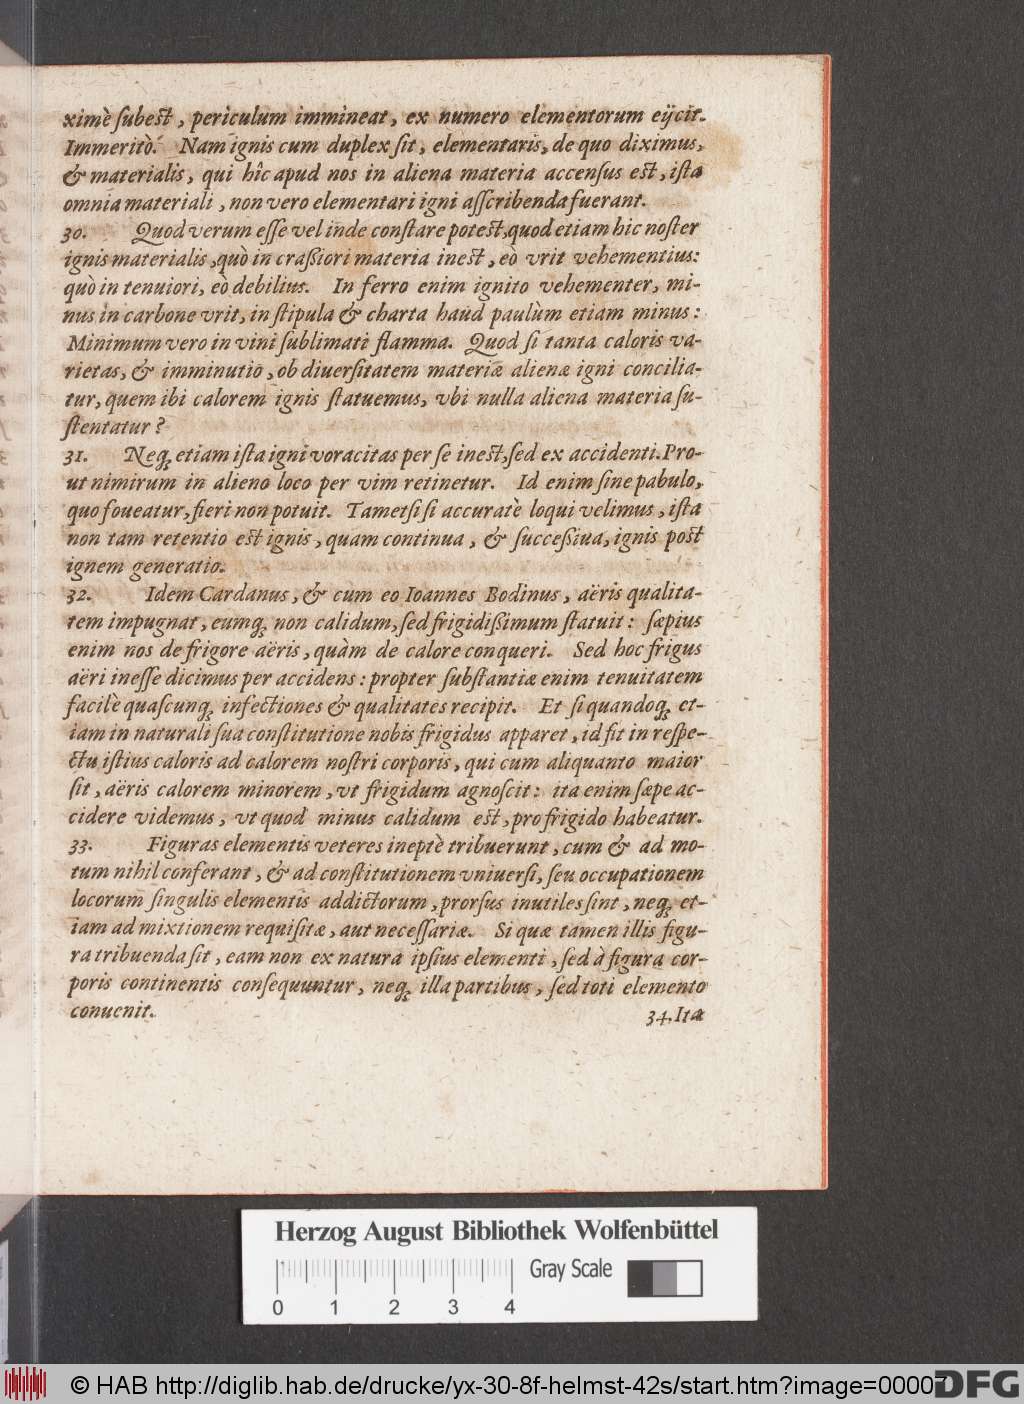 ximè ſubest, periculum immineat, ex numero elementorum eijcit.
Immeritò. Nam ignis cum duplex ſit, elementaris, de quo diximus,
& materialis, qui hîc apud nos in aliena materia accenſus est, iſta
omnia materiali, non vero elementari igni aſſcribenda fuerant.
30. Quod verum eſſe vel inde conſtare potest, quod etiam hic noſter
ignis materialis, quò in craßiori materia inest, eò vrit vehementius:
quò in tenuiori, eò debilius. In ferro enim ignito vehementer, mi-
nus in carbone vrit, in ſtipula & charta haud paulùm etiam minus:
Minimum vero in vini ſublimati flamma. Quod ſi tanta caloris va-
rietas, & imminutio, ob diuerſitatem materiæ alienæ igni concilia-
tur, quem ibi calorem ignis ſtatuemus, vbi nulla aliena materia ſu-
ſtentatur?
31. Neq; etiam iſta igni voracitas per ſe inest, ſed ex accidenti. Pro-
ut nimirum in alieno loco per vim retinetur. Id enim ſine pabulo,
quo foueatur, fieri non potuit. Tametſi ſi accuratè loqui velimus, iſta
non tam retentio est ignis, quam continua, & ſucceßiua, ignis post
ignem generatio.
32. Idem Cardanus, & cum eo Ioannes Bodinus, aëris qualita-
tem impugnat, eumq; non calidum, ſed frigidißimum ſtatuit: ſæpius
enim nos de frigore aëris, quàm de calore conqueri. Sed hoc frigus
aëri ineſſe dicimus per accidens: propter ſubſtantiæ enim tenuitatem
facilè quaſcunq; infectiones & qualitates recipit. Et ſi quandoq; et-
iam in naturali ſua conſtitutione nobis frigidus apparet, id fit in reſpe-
ctu iſtius caloris ad calorem noſtri corporis, qui cum aliquanto maior
ſit, aëris calorem minorem, vt frigidum agnoſcit: ita enim ſæpe ac-
cidere videmus, vt quod minus calidum est, pro frigido habeatur.
33. Figuras elementis veteres ineptè tribuerunt, cum & ad mo-
tum nihil conferant, & ad conſtitutionem vniuerſi, ſeu occupationem
locorum ſingulis elementis addictorum, prorſus inutiles ſint, neq; et-
iam ad mixtionem requiſitæ, aut neceſſariæ. Si quæ tamen illis figu-
ra tribuenda ſit, eam non ex natura ipſius elementi, ſed à figura cor-
poris continentis conſequuntur, neq; illa partibus, ſed toti elemento
conuenit.
34. Ita
Herzog August Bibliothek Wolfenbüttel
Gray Scale
0 1 2 3 4
© HAB http://diglib.hab.de/drucke/yx-30-8f-helmst-42s/start.htm?image=00007
DFG